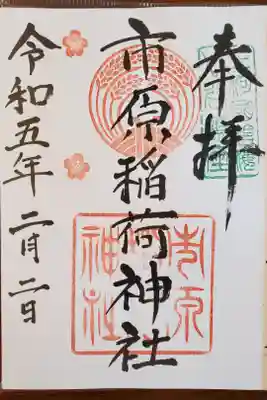 奉拝
市原稲荷神社
令和五年二月二日
市原
神社